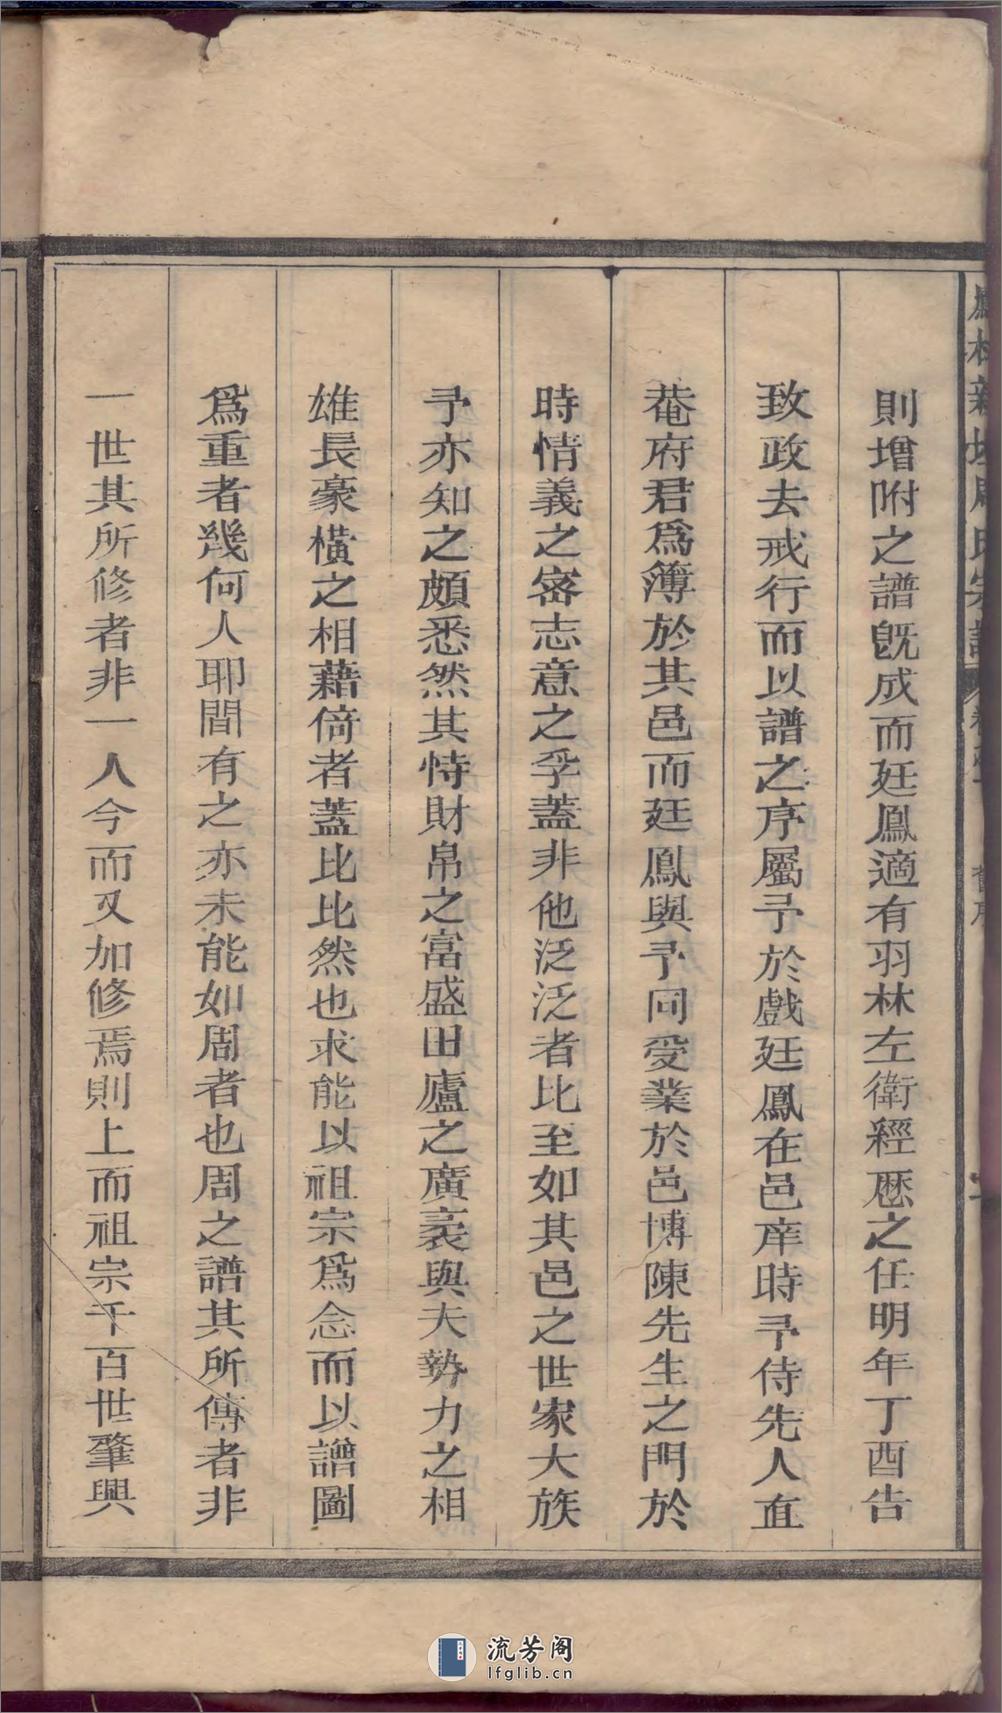 則增附之譜旣成而廷鳳適有羽林左衛經歷之任明年丁酉告
致政去戒行而以譜之序屬予於戲廷鳳在邑庠時予侍先人直
菴府君爲簿於其邑而廷鳳與予同受業於邑博陳先生之門於
時情義之密志意之孚蓋非他泛泛者比至如其邑之世家大族
予亦知之頗悉然其恃財帛之富盛田廬之廣袤與夫勢力之相
雄長豪橫之相藉倚者蓋比比然也求能以祖宗爲念而以譜圖
爲重者幾何人耶間有之亦未能如周者也周之譜其所傳者非
一世其所修者非一人今而又加修焉則上而祖宗千百世肇興
流芳阁
lfglib.cn